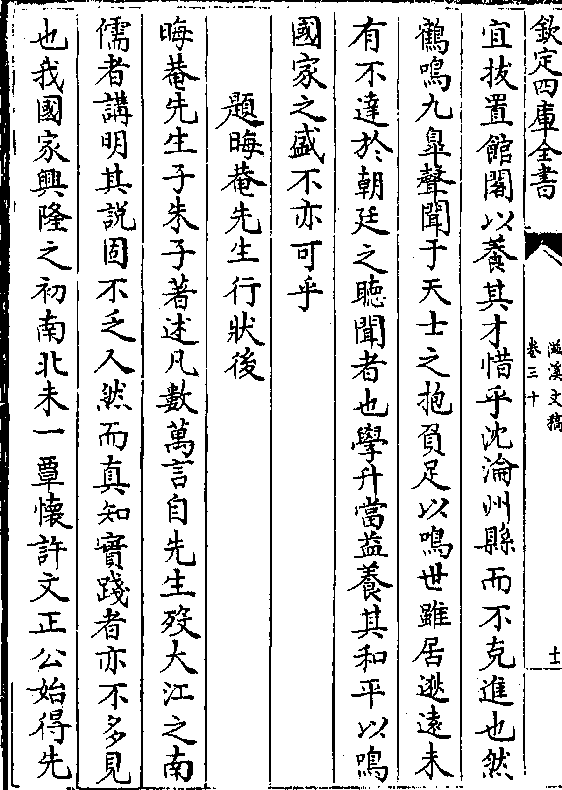 欽定四庫全書
滋溪文稿
卷三十
十
宜拔置館閣以養其才惜乎沈淪州縣而不克進也然
鶴鳴九臯聲聞于天士之抱負足以鳴世雖居遐遠未
有不達於朝廷之聴聞者也學升當益養其和平以鳴
國家之盛不亦可乎
題晦菴先生行狀後
晦菴先生子朱子著述凡數萬言自先生殁大江之南
儒者講明其説固不乏人然而真知實踐者亦不多見
也我國家興隆之初南北未一覃懷許文正公始得先